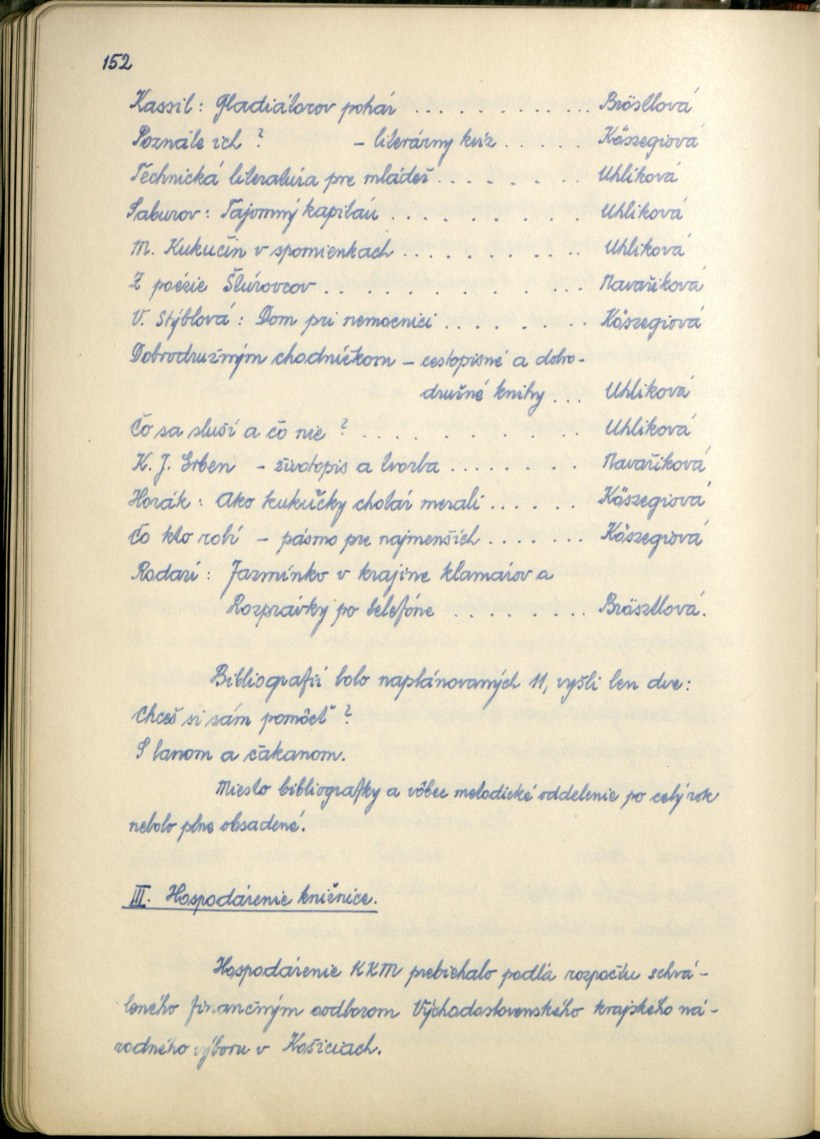 152
Kassil: Gladiátorov pohár . . . . . . . . . . . Brösllová
Poznáte ich ? – literárny kviz . . . . . . Köszegiová
Technická literatúra pre mládež . . . . . . . . Uhliková
Saburov: Tajomný kapitán . . . . . . . . . . Uhliková
M. Kukučín v spomienkach . . . . . . . . . . Uhliková
Z poézie Štúrovcov . . . . . . . . . . . . . . Navaříková
V. Stýblová: Dom pri nemocnici . . . . . . . . Köszegiová
Dobrodružným chodníčkom – cestopisné a dobro-
družné knihy Uhliková
Čo sa sluší a čo nie ? . . . . . . . . . . . . Uhliková
K. J. Erben – životopis a tvorba . . . . . . . . Navaříková
Horák: Ako kukučky chotár merali . . . . . . Köszegiová
Čo kto robí – pásmo pre najmenších . . . . . . Köszegiová
Rodari: Jazmínko v krajine klamárov a
Rozprávky po telefóne . . . . . . . . . Brösztlová.
Bibliografií bolo naplánovaných 11, vyšli len dve:
Chceš si sám pomôcť ?
S lanom a čakanom.
Miesto bibliografky a vôbec metodické oddelenie po celý rok
nebolo plne obsadené.
III. Hospodárenie knižnice.
Hospodárenie KKM prebiehalo podľa rozpočtu schvá-
leného finančným oodborom Východoslovenského krajského ná-
rodného výboru v Košiciach.